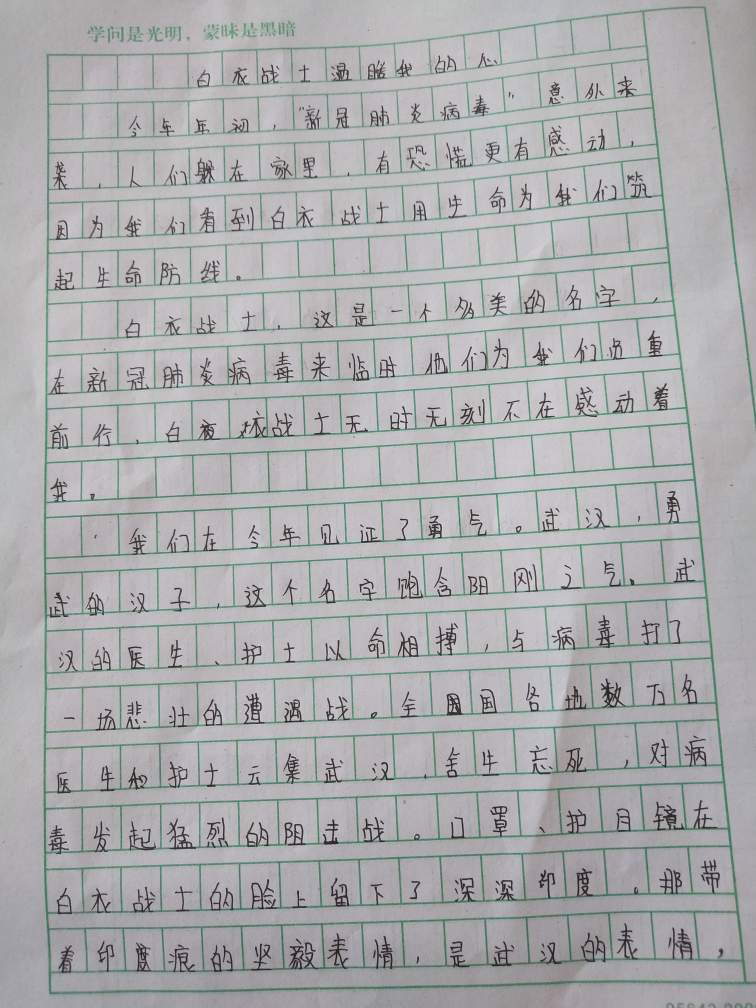 学问是光明，蒙昧是黑暗
白衣战士温暖我的心
今年年初，“新冠肺炎病毒”意外来
袭，人们躲在家里，有恐慌更有感动，
因为我们看到白衣战士用生命为我们筑
起生命防线。
白衣战士，这是一个多美的名字，
在新冠肺炎病毒来临时他们为我们负重
前行，白衣战士无时无刻不在感动着
我。
我们在今年见证了勇气。武汉，勇
武的汉子，这个名字饱含阳刚之气。武
汉的医生、护士以命相搏，与病毒打了
一场悲壮的遭遇战。全国各地数万名
医生和护士云集武汉，舍生忘死，对病
毒发起猛烈的阻击战。口罩、护目镜在
白衣战士的脸上留下了深深印度。那带
着印痕的坚毅表情，是武汉的表情，